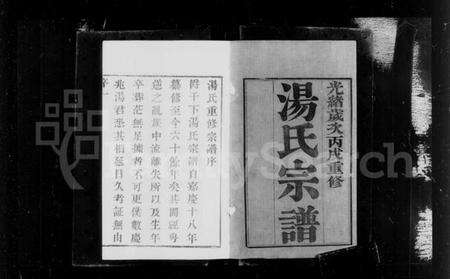 光緒歲次丙戌重修
湯氏宗譜
湯氏重修宗譜序
府十下湯氏宗譜自嘉慶十八年
纂修至今六十餘年矣其間經粵
逆之亂族中流離失所以及生年
卒葬茫無
不可更僕數慶
兆湯君
其
日久考証無由
FamilySearch